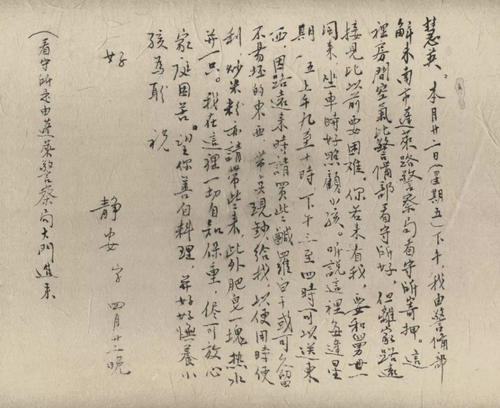 慧英。本月廿二日（星期五）下午，我由警備部
解來南市蓬萊路警察局看守所寄押。這
裡房間空氣比警備部看守所好，但離家路遠
接見比以前要困難。你若來看我，要和舅母一
同來，坐車時好照顧小孩。听說這裡每逢星
期一、五上午九至十時下午三至四時可以送東
西，因路遠來時請買些鹹羅白干或可久留
不易壞的東西，帶兌現款給我，以便用時便
利，炒米粉亦請帶些來，此外肥皂一塊熱水
并一只。我在這理一切自知保重，儘可放心
家庭困苦。望你善自料理，并好好撫養小
孩為盼 祝
好
靜安字 四月廿二晚
（看守所是由蓬萊警察局大門進來